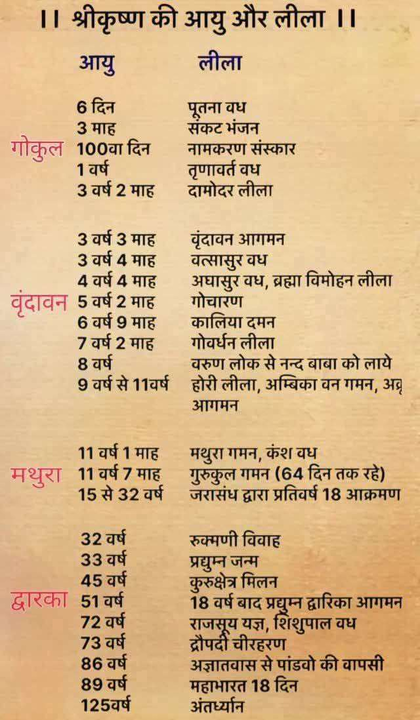 ।। श्रीकृष्ण की आयु और लीला ।।
आयु लीला
6 दिन पूतना वध
3 माह संकट भंजन
गोकुल 100वा दिन नामकरण संस्कार
1 वर्ष तृणावर्त वध
3 वर्ष 2 माह दामोदर लीला
3 वर्ष 3 माह वृंदावन आगमन
3 वर्ष 4 माह वत्सासुर वध
4 वर्ष 4 माह अघासुर वध, व्रह्मा विमोहन लीला
वृंदावन 5 वर्ष 2 माह गोचारण
6 वर्ष 9 माह कालिया दमन
7 वर्ष 2 माह गोवर्धन लीला
8 वर्ष वरुण लोक से नन्द बाबा को लाये
9 वर्ष से 11वर्ष होरी लीला, अम्बिका वन गमन,
आगमन
11 वर्ष 1 माह मथुरा गमन, कंश वध
मथुरा 11 वर्ष 7 माह गुरुकुल गमन (64 दिन तक रहे)
15 से 32 वर्ष जरासंध द्वारा प्रतिवर्ष 18 आक्रमण
32 वर्ष रुक्मणी विवाह
33 वर्ष प्रद्युम्न जन्म
45 वर्ष कुरुक्षेत्र मिलन
द्वारका 51 वर्ष 18 वर्ष बाद प्रद्युम्न द्वारिका आगमन
72 वर्ष राजसूय यज्ञ, शिशुपाल वध
73 वर्ष द्रौपदी चीरहरण
86 वर्ष अज्ञातवास से पांडवो की वापसी
89 वर्ष महाभारत 18 दिन
125वर्ष अंतर्ध्यान